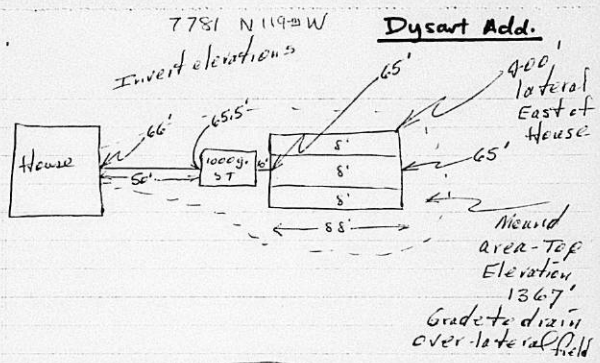 7781 N 119th W
Dysart Add.
Invert elevations
65'
400'
lateral
East of
House
66'
65.5'
House
50'
1000g.
ST
10'
8'
8'
8'
65'
88'
Mound
area-Top
Elevation
1367'
Grade to drain
over-lateral field